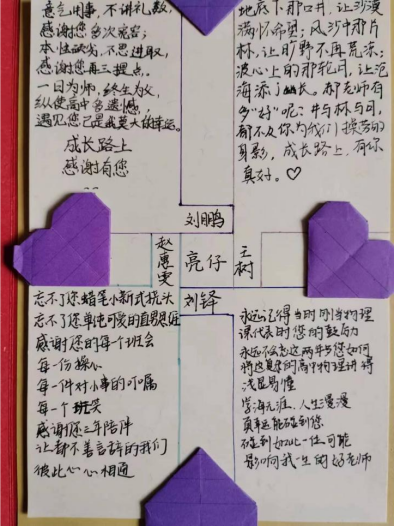 意气用事，不讲礼数，
感谢您多次宽容；
本性缺劣，不思进取，
感谢您再三提点。
一日为师，终生为父，
纵使高中多遗憾，
遇见您已是我莫大的幸运。
成长路上
感谢有您
地底下那口井，让沙漠
满怀希望；风沙中那片
林，让旷野不再荒凉；
波心上的那轮月，让沧
海添了幽长。郝老师有
多“好”呢：井与林与月，
都不及你为我们操劳的
身影，成长路上，有你
真好。♡
刘鹏
赵惠雯
亮仔
王树
刘铎
忘不了您蜡笔小新式挑头
忘不了您单纯可爱的直男思维
感谢您的每个班会
每一份操心
每一件对小事的叮嘱
每一个班笑
感谢您三年陪伴
让都不善言辞的我们
彼此心心相通
永远记得当时刚当物理
课代表时您的鼓励
永远不会忘这两年与您如何
将这复杂的高中物理讲得
浅显易懂
学海无涯，人生漫漫
真幸运能碰到您
碰到如此一位可能
影响我一生的好老师